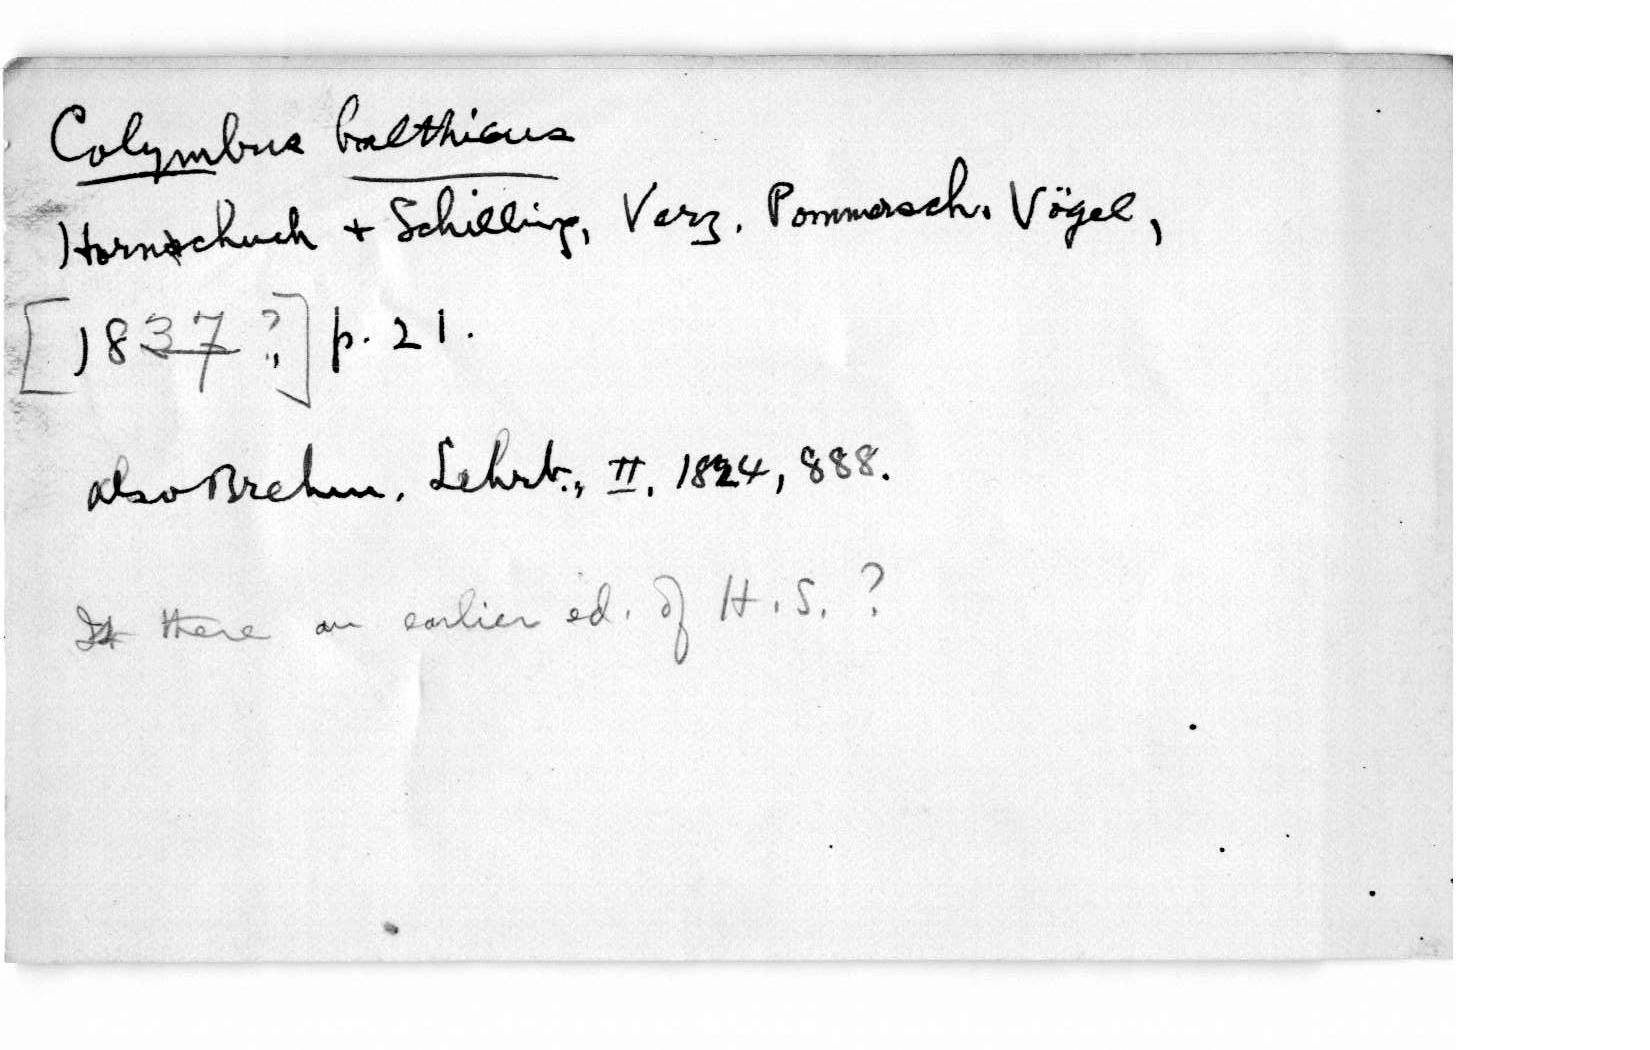 Colymbus balthicus
Hornschuch + Schilling, Verz. Pommersch. Vögel,
[1837?] p. 21.
also Brehm, Lehrb., II, 1824, 888.
Is there an earlier ed. of H. S. ?